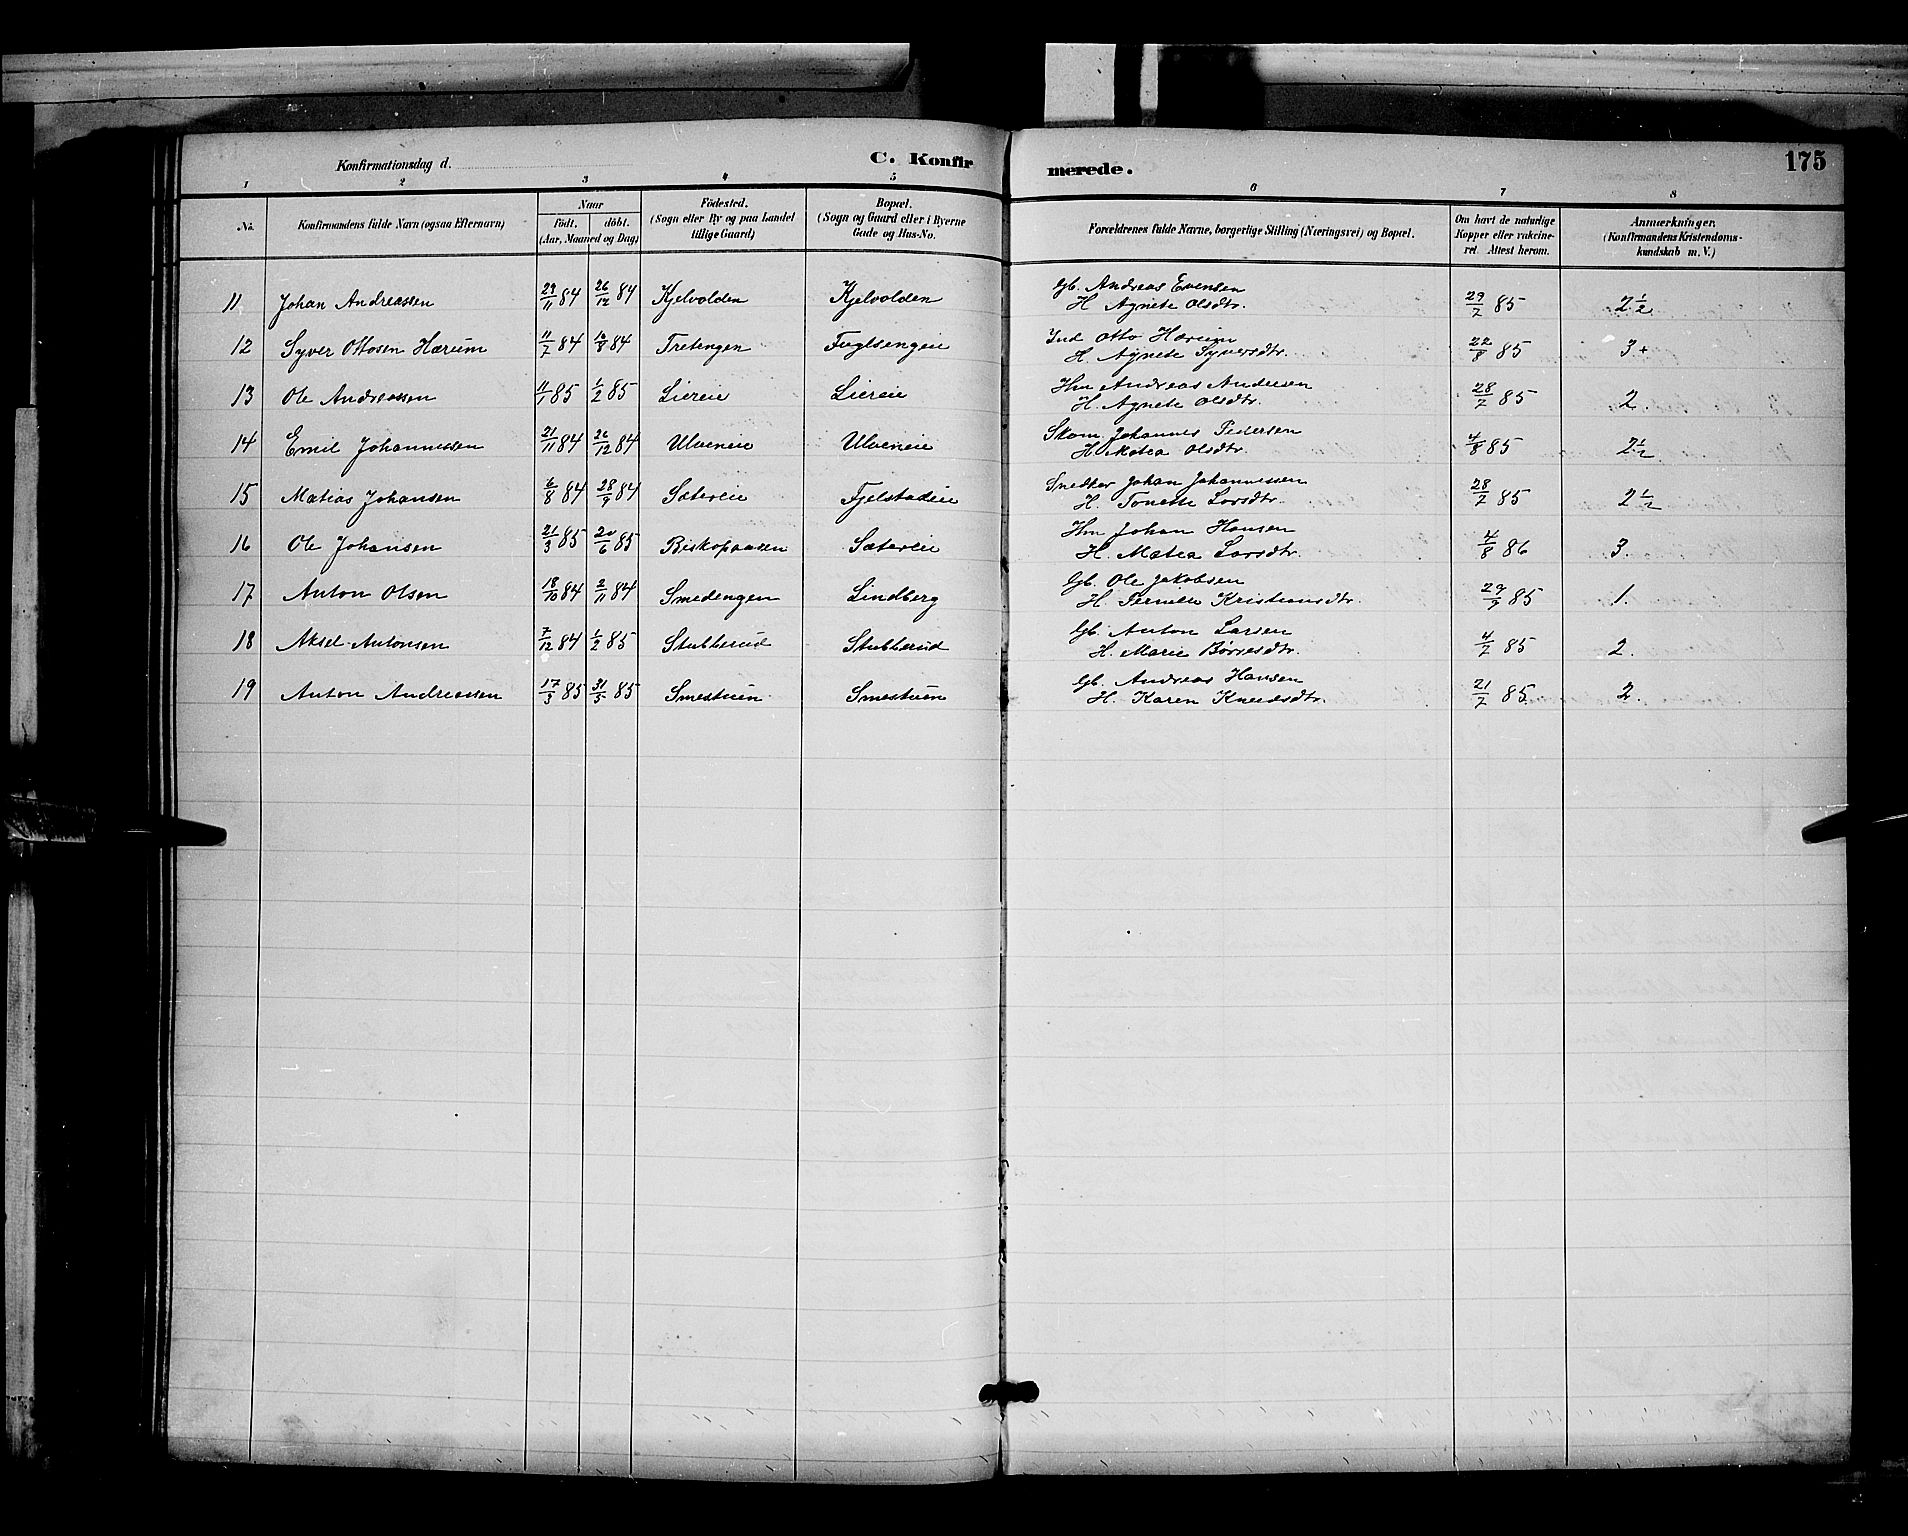 Konfirmationsdag d. C. Konfirmerede. 175
1 2 3 4 5 6 7 8
No. Konfirmandens fulde Navn (ogsaa Efternavn) Naar födt. döbt. (Aar, Maaned og Dag) Födested. (Sogn eller By og paa Landet tillige Gaard) Bopæl. (Sogn og Gaard eller i Byerne Gade og Hus-No. Forældrenes fulde Navne, borgerlige Stilling (Næringsvei) og Bopæl. Om havt de naturlige Kopper eller vakcineret. Attest herom. Anmærkninger. (Konfirmandens Kristendomskundskab m. V.)
11 Johan Andreassen 29/11 84 26/12 84 Kjelvolden Kjelvolden Gb. Andreas Evensen
H. Agnete Olsdtr. 29/7 85 2 1/2
12 Syver Ottosen Hærum 11/7 84 10/8 84 Tretengen Fuglsengeie Ind Otto Hærum
H. Agnete Syversdtr. 22/8 85 3+
13 Ole Andreassen 11/1 85 1/2 85 Liereie Liereie Hm Andreas Andersen
H. Agnete Olsdtr. 28/7 85 2.
14 Emil Johannessen 21/11 84 26/12 84 Ulveneie Ulveneie Skom. Johannes Pedersen
H. Matea Olsdtr. 4/8 85 2 1/2
15 Matias Johansen 6/8 84 28/9 84 Sætereie Fjelstadeie Snedker Johan Johannessen
H. Tonette Larsdtr. 28/7 85 2 1/2
16 Ole Johansen 21/3 85 20/6 85 Biskopaasen Sætereie Hm Johan Hansen
H. Matea Larsdtr. 4/8 86 3.
17 Anton Olsen 18/10 84 2/11 84 Smedengen Lindberg Gb. Ole Jakobsen
H. Pernille Kristiansdtr. 29/9 85 1.
18 Aksel Antonsen 7/12 84 1/2 85 Stubberud Stubberud Gb. Anton Larsen
H. Marie Børresdtr. 4/7 85 2.
19 Anton Andreassen 17/3 85 31/5 85 Smestuen Smestuen Gb. Andreas Hansen
H. Karen Knudsdtr. 21/7 85 2.